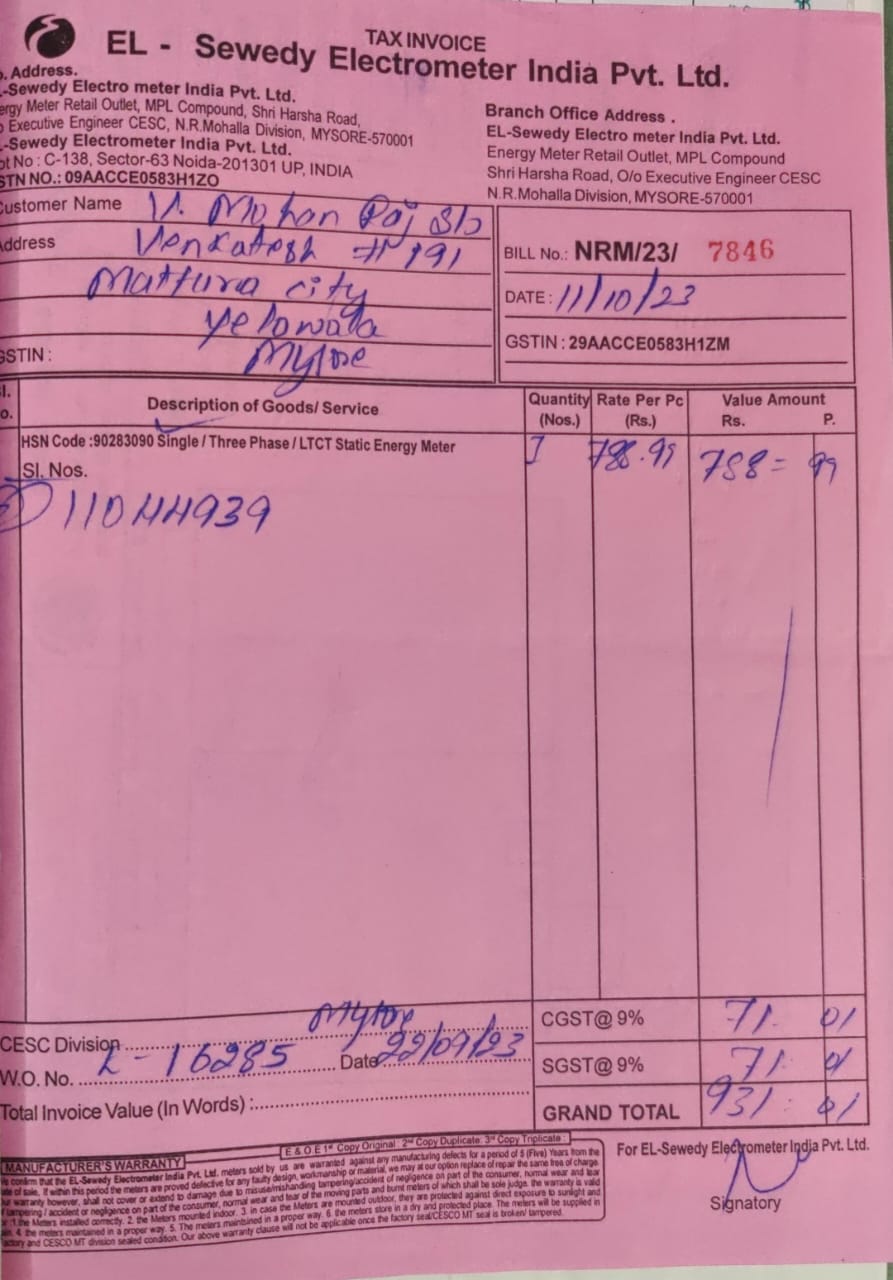 TAX INVOICE
EL - Sewedy Electrometer India Pvt. Ltd.
. Address.
-Sewedy Electro meter India Pvt. Ltd.
ergy Meter Retail Outlet, MPL Compound, Shri Harsha Road,
Executive Engineer CESC, N.R.Mohalla Division, MYSORE-570001
-Sewedy Electrometer India Pvt. Ltd.
ot No : C-138, Sector-63 Noida-201301 UP, INDIA
STN NO.: 09AACCE0583H1ZO
Branch Office Address .
EL-Sewedy Electro meter India Pvt. Ltd.
Energy Meter Retail Outlet, MPL Compound
Shri Harsha Road, O/o Executive Engineer CESC
N.R.Mohalla Division, MYSORE-570001
ustomer Name V. Mohan Raj S/o
ddress Venkatesh # 191
Mattura city
Yelowala
GSTIN : Mysore
BILL No.: NRM/23/ 7846
DATE : 11/10/23
GSTIN : 29AACCE0583H1ZM
l. o. Description of Goods/ Service Quantity (Nos.) Rate Per Pc (Rs.) Value Amount Rs. P.
HSN Code :90283090 Single / Three Phase / LTCT Static Energy Meter 1 788.99 788= 99
Sl. Nos.
11044939
CESC Division Mysore
W.O. No. L-16285 Date 22/09/23
Total Invoice Value (In Words) :
CGST@ 9% 71. 01
SGST@ 9% 71. 01
GRAND TOTAL 931. 01
E & O E 1st Copy Original : 2nd Copy Duplicate: 3rd Copy Triplicate :
MANUFACTURER'S WARRANTY
confirm that the EL-Sewedy Electrometer India Pvt. Ltd. meters sold by us are warranted against any manufacturing defects for a period of 5 (Five) Years from the
ate of sale. If within this period the meters are proved defective for any faulty design, workmanship or material, we may at our option replace of repair the same free of charge.
ur warranty however, shall not cover or extend to damage due to misuse/mishanding tampering/accident of negligence on part of the consumer, normal wear and tear
tampering / accident or negligence on part of the consumer, normal wear and tear of the moving parts and burnt meters of which shall be sole judge. the warranty is valid
1.the Meters installed correctly. 2. the Meters mounted indoor. 3. in case the Meters are mounted outdoor, they are protected against direct exposure to sunlight and
4. the meters maintained in a proper way. 5. The meters maintsined in a proper way. 6. the meters store in a dry and protected place. The meters will be supplied in
actory and CESCO MT division sealed condition. Our above warranty clause will not be applicable once the factory seal/CESCO MT seal is broken/ tampered.
For EL-Sewedy Electrometer India Pvt. Ltd.
Signatory